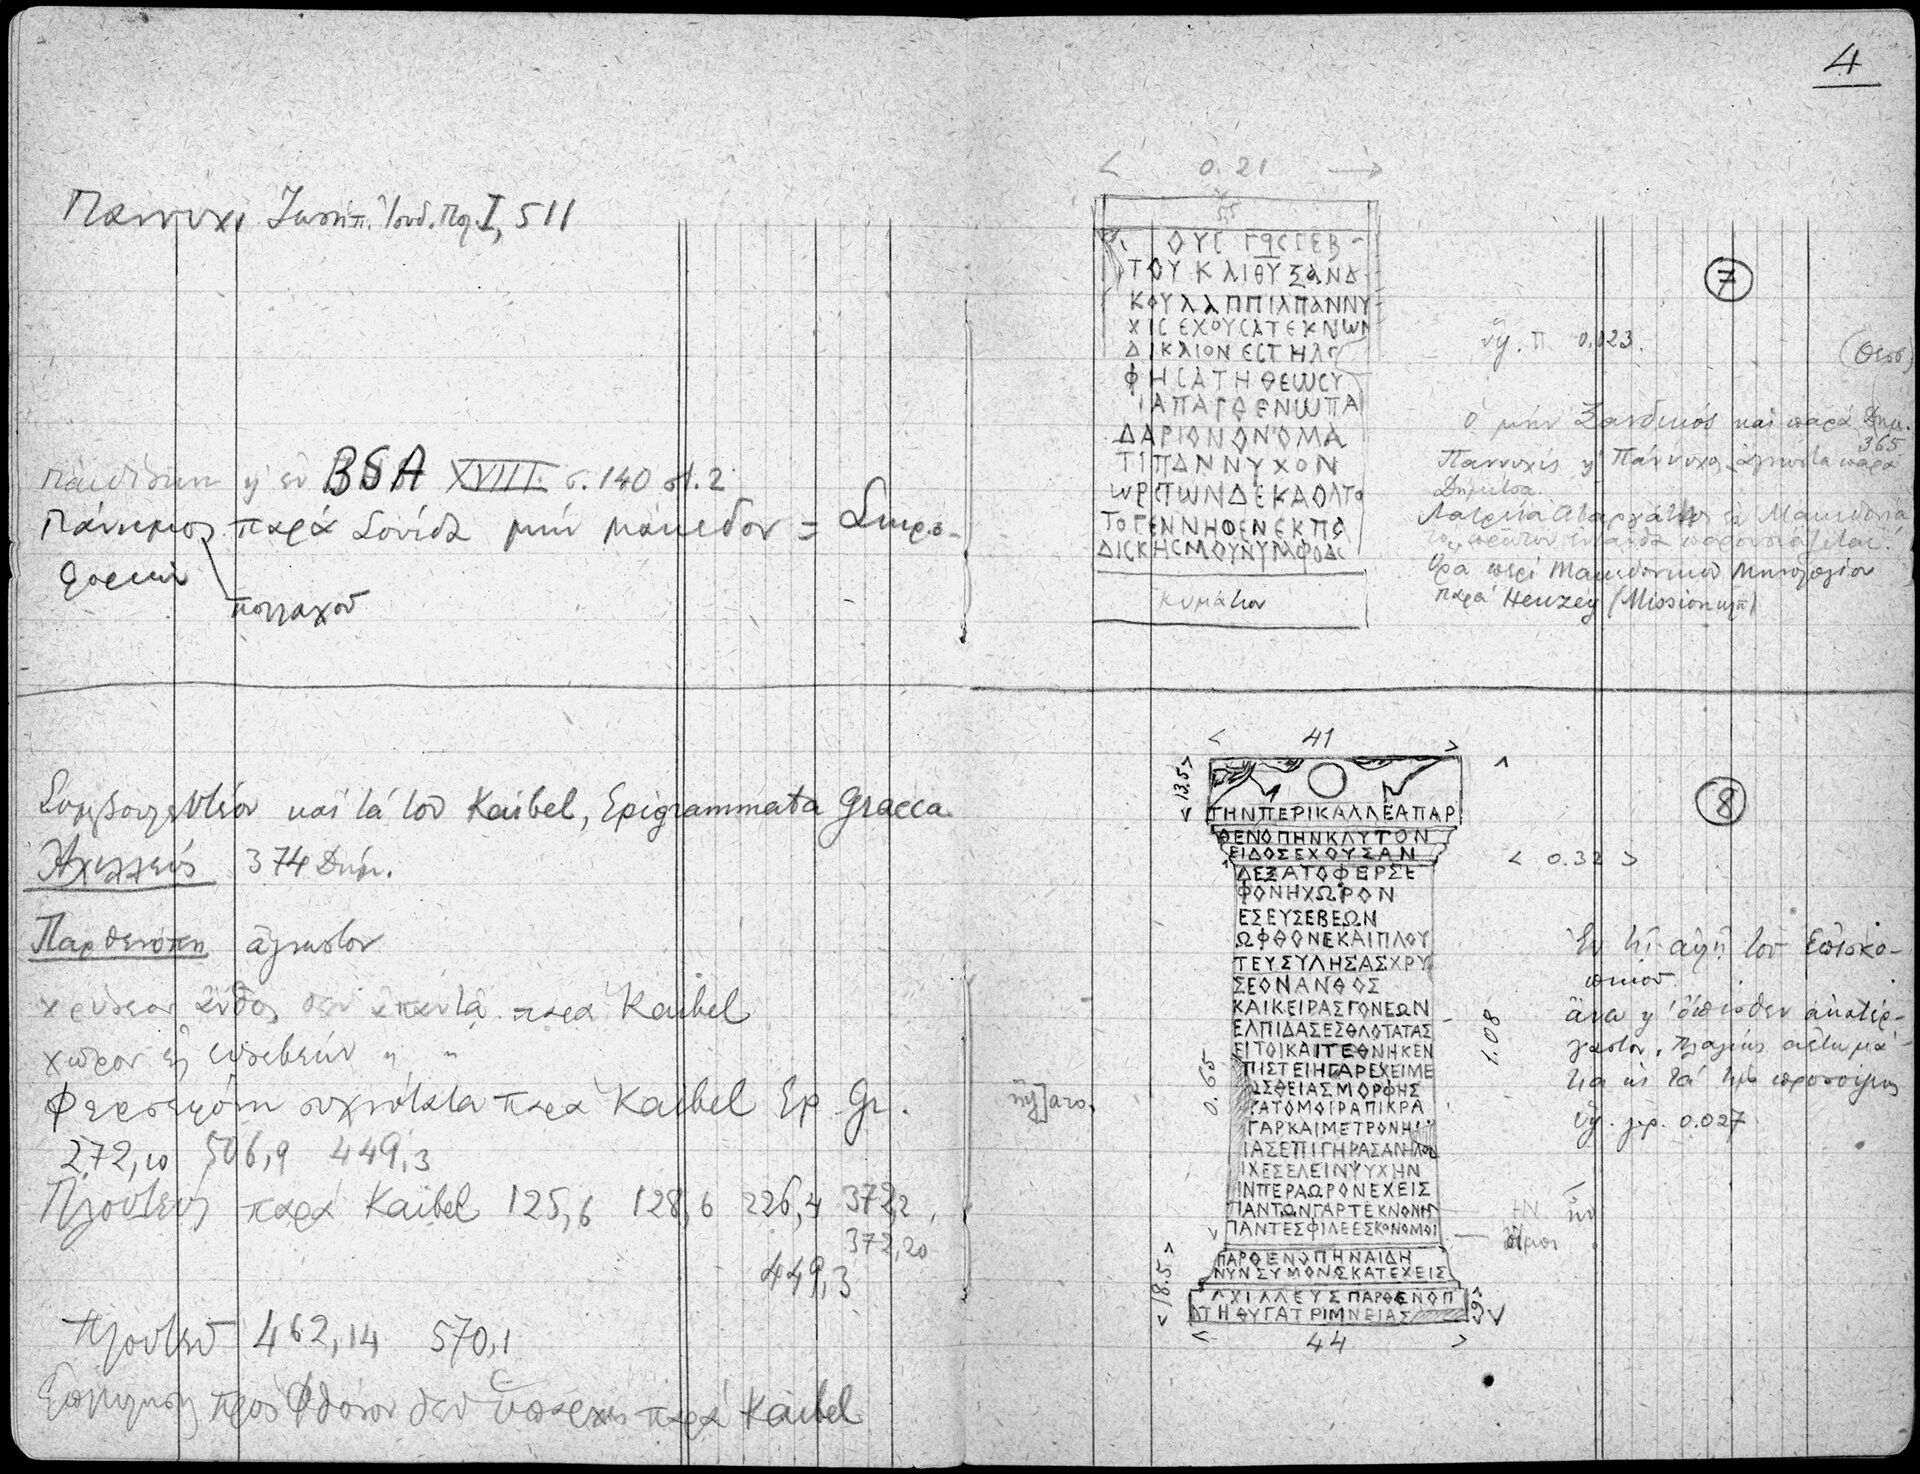 Παννυχί Ἰωσήπ. Ἰουδ. Πολ. I, 511
ἐν BSA XVIII. σ. 140 στ. 2
Πάνημος παρά Σουίδα μήν μακεδον = Σκιρο-
φοριών
πολλαχοῦ
Συμβουλευτέον καί τά τοῦ Kaibel, Epigrammata Graeca
Ἀχιλλεύς 374 Δημ.
Παρθενόπη ἄγνωστον
χρύσεον ἄνθος δέν ἀπαντᾷ παρά Kaibel
χῶρον ἐς εὐσεβέων " "
Φερσεφόνη συχνότατα παρά Kaibel Ep Gr.
272,10 506,9 449,3
Πλουτεύς παρά Kaibel 125,6 128,6 226,4 372,2,
372,20
449,3
Πλουτεῦ 462,14 570,1
πρός Φθόνον δέν ὑπάρχει παρά Kaibel
4
0.21
55
ΟΥΣ ΓϘΣ ΣΕΒ
ΤΟΥ ΚΑΙΘΥ ΞΑΝΔ
ΚΟΥ ΛΑΠΠΙΑ ΠΑΝΝΥ
ΧΙΣ ΕΧΟΥΣΑ ΤΕΚΝΩΝ
ΔΙΚΑΙΟΝ ΕΣΤΗΛΟ
ΦΗΣΑ ΤΗ ΘΕΩ ΣΥ
ΙΑ ΠΑΡΘΕΝΩ ΠΑ
ΔΑΡΙΟΝ ΟΝΟΜΑ
ΤΙ ΠΑΝΝΥΧΟΝ
ΩΡΣ ΤΩΝ ΔΕΚΑ ΟΛΤΟ
ΤΟ ΓΕΝΝΗΘΕΝ ΕΚ ΠΑ
ΔΙΣΚΗΣ ΜΟΥ ΝΥΜΦΟΔΣ
κυμάτιον
7
ὕψ. π. 0,023.
(Θεσσ)
ὁ μήν Ξανδικός καί παρά Δημ.
365
Παννυχίς ἤ Πάννυχος ἄγνωστα παρά
Δημίτσα.
Λατρεία Ἀταργάτιος ἐν Μακεδονίᾳ
Ὅρα περί Μακεδονικοῦ Μηνολογίου
παρά Heuzey (Mission
41
13.5
8
ΤΗΝΠΕΡΙΚΑΛΛΕΑΠΑΡ
ΘΕΝΟΠΗΝΚΛΥΤΟΝ
ΕΙΔΟΣΕΧΟΥΣΑΝ
0.32
ΔΕΞΑΤΟΦΕΡΣΕ
ΦΟΝΗΧΩΡΟΝ
ΕΣΕΥΣΕΒΕΩΝ
ΩΦΘΟΝΕΚΑΙΠΛΟΥ
ΤΕΥΣΥΛΗΣΑΣΧΡΥ
ΣΕΟΝΑΝΘΟΣ
ΚΑΙΚΕΙΡΑΣΓΟΝΕΩΝ
ΕΛΠΙΔΑΣΕΣΘΛΟΤΑΤΑΣ
ΕΙΤΟΙΚΑΙΤΕΘΝΗΚΕΝ
ΠΙΣΤΕΙΗΓΑΡΕΧΕΙΜΕ
ΩΣΘΕΙΑΣΜΟΡΦΗΣ
ΓΑΤΟΜΟΙΡΑΠΙΚΡΑ
ΓΑΡΚΑΙΜΕΤΡΟΝΗΛ
ΙΑΣΕΠΙΓΗΡΑΣΑΝΗΛΘΟ
ΙΧΕΣΕΛΕΙΝΨΥΧΗΝ
ΙΝΠΕΡΑΩΡΟΝΕΧΕΙΣ
ΠΑΝΤΩΝΓΑΡΤΕΚΝΟΝΗ
ΠΑΝΤΕΣΦΙΛΕΕΣΚΟΝΟΜΟΙ
ΠΑΡΘΕΝΟΠΗΝΑΙΔΗ
ΝΥΝΣΥΜΟΝΟΣΚΑΤΕΧΕΙΣ
ΑΧΙΛΛΕΥΣΠΑΡΘΕΝΟΠ
ΔΤΗΘΥΓΑΤΡΙΜΝΕΙΑΣ
0.65
1.08
18.5
9
44
Ἐν τῇ αὐλῇ τοῦ Ἐπισκο-
πικοῦ.
ἄνω ἤ ὄπισθεν ἀκατέρ-
γαστον. πλαγίως ἀετωμά-
τια ὡς τά τῆς προσόψεως
ὕψ. γρ. 0.027